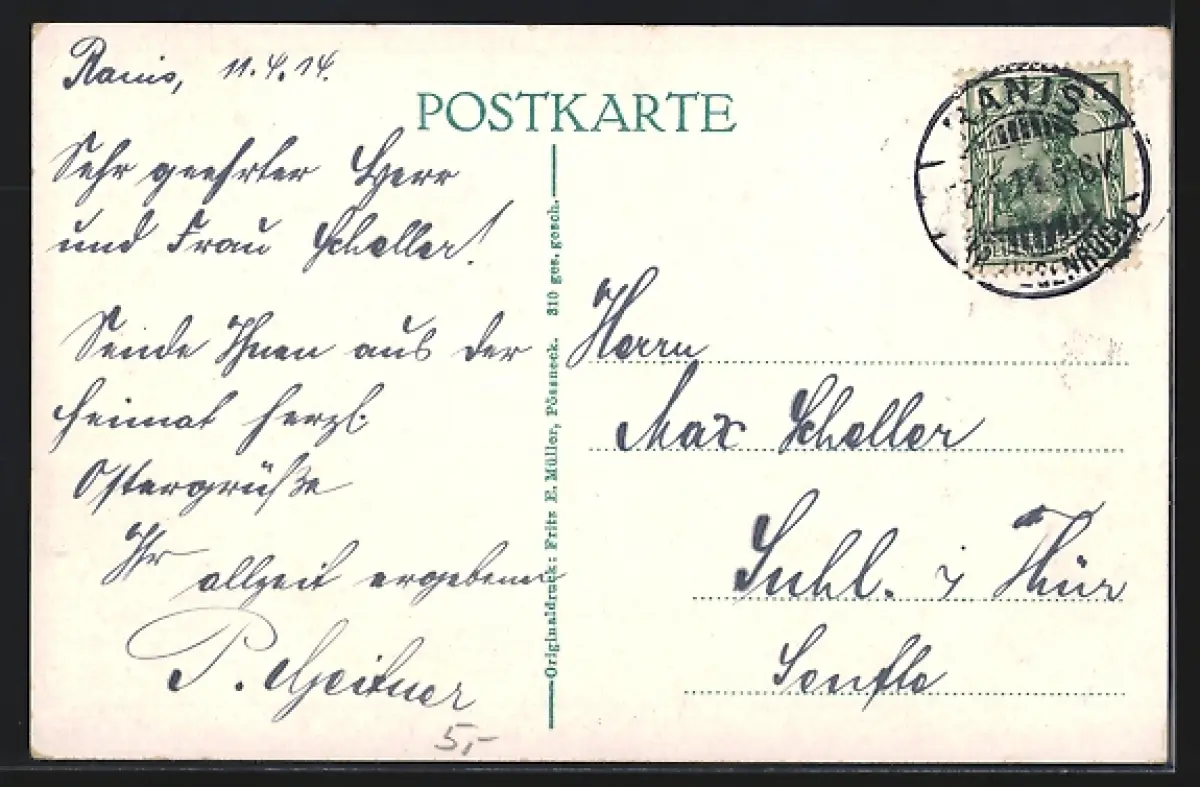 Ranis, 11.4.14.
POSTKARTE
Sehr geehrter Herr
und Frau Scheller!
Sende Ihnen aus der
Heimat herzl.
Ostergrüße
Ihr
allzeit ergebener
P. Geitner
5,-
Originaldruck: Fritz E. Müller, Pössneck. 310 ges. gesch.
RANIS
5-6 V
Herrn
Max Scheller
Suhl. i Thür